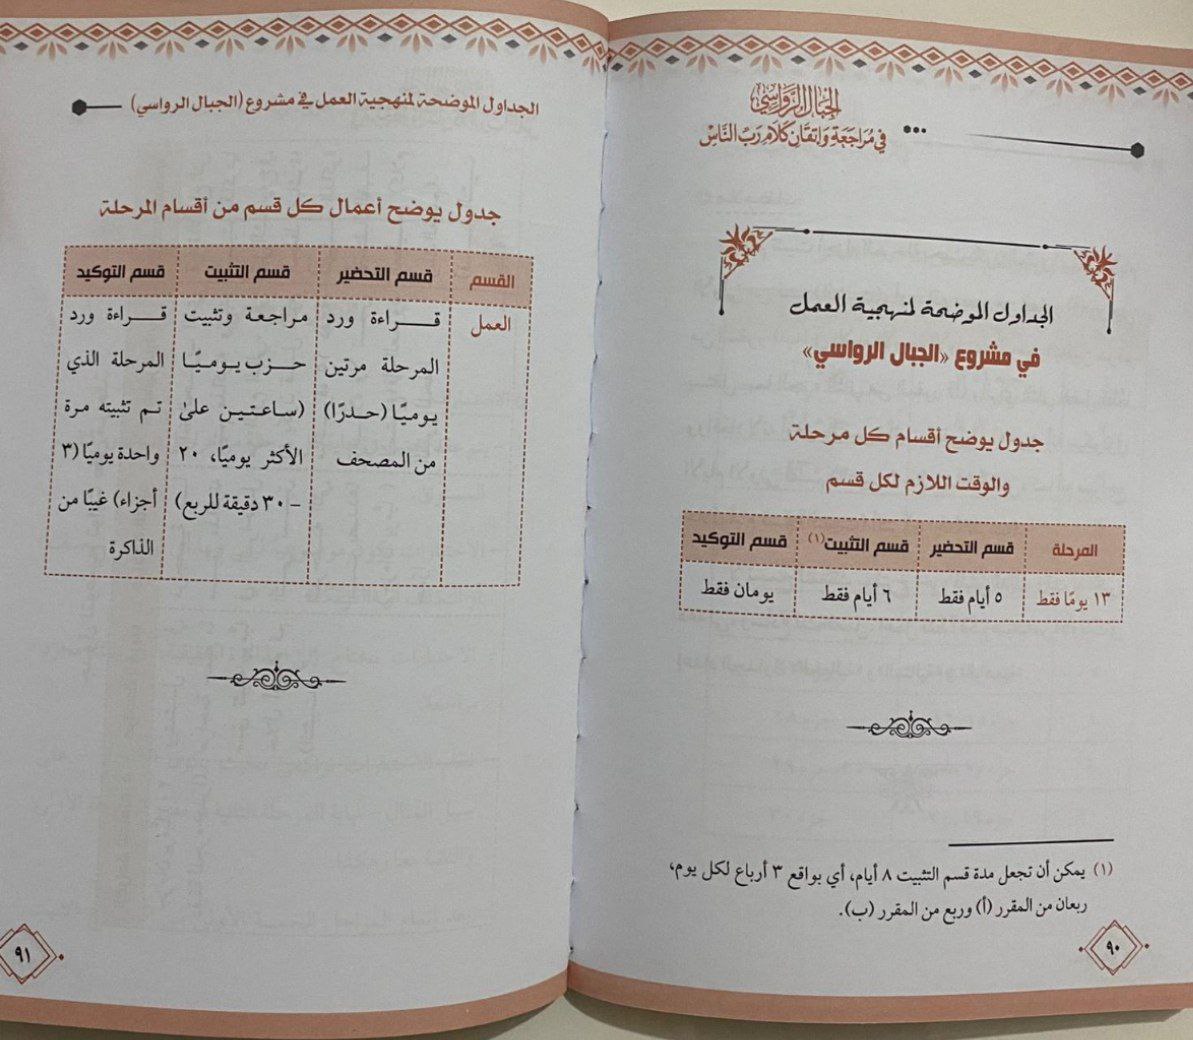 الجبال الرواسي
في مُرَاجَعَةِ وَإتقَانِ كَلَامِ رَبِّ النَّاسْ
الجداول الموضحة لمنهجية العمل
في مشروع «الجبال الرواسي»
جدول يوضح أقسام كل مرحلة
والوقت اللازم لكل قسم
المرحلة قسم التحضير قسم التثبيت(١) قسم التوكيد
١٣ يومًا فقط ٥ أيام فقط ٦ أيام فقط يومان فقط
(١) يمكن أن تجعل مدة قسم التثبيت ٨ أيام، أي بواقع ٣ أرباع لكل يوم،
ربعان من المقرر (أ) وربع من المقرر (ب).
٩٠
الجداول الموضحة لمنهجية العمل في مشروع (الجبال الرواسي)
جدول يوضح أعمال كل قسم من أقسام المرحلة
القسم قسم التحضير قسم التثبيت قسم التوكيد
العمل قــراءة ورد مراجعة وتثبيت قــراءة ورد
المرحلة مرتين حــزب يوميًّـا المرحلة الذي
يوميًا (حــدرًا) (ساعـتـين علىٰ تم تثبيته مرة
من المصحف الأكثر يوميًا، ٢٠ واحدة يوميًا (٣
– ٣٠ دقيقة للربع) أجزاء) غيبًا من
الذاكرة
٩١